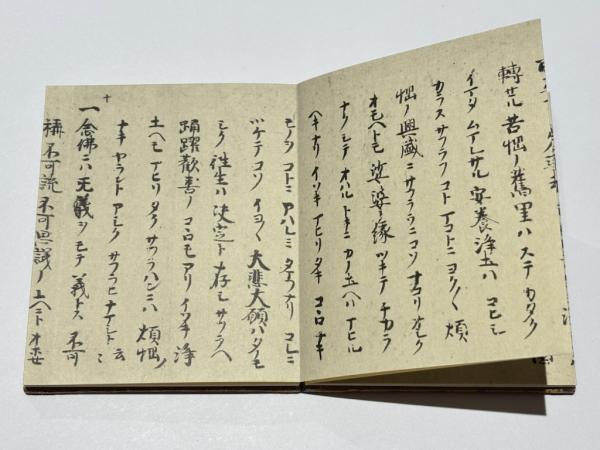 轉セル苦惱ノ舊里ハステカタク
イマタムマレサル安養浄土ハコヒシ
カラスサフラフコトマコトニヨク〱煩
惱ノ興盛ニサフラフニコソナコリオシク
オモヘトモ娑婆ノ縁ツキテチカラ
ナクシテオハルトキニカノ土ヘハマヒル
ヘキナリイソキマヒリタキコヽロナキ
モノヲコトニアハレミタマフナリコレニ
ツケテコソイヨ〱大悲大願ハタノモ
シク往生ハ決定ト存シサフラヘ
踊躍歡喜ノコヽロモアリイソキ浄
土ヘモマヒリタクサフラハンニハ煩惱ノ
ナキヤラントアヤシクサフラヒナマシト云々
十
一念佛ニハ无義ヲモテ義トス不可
稱不可説不可思議ノユヘニトオホセ